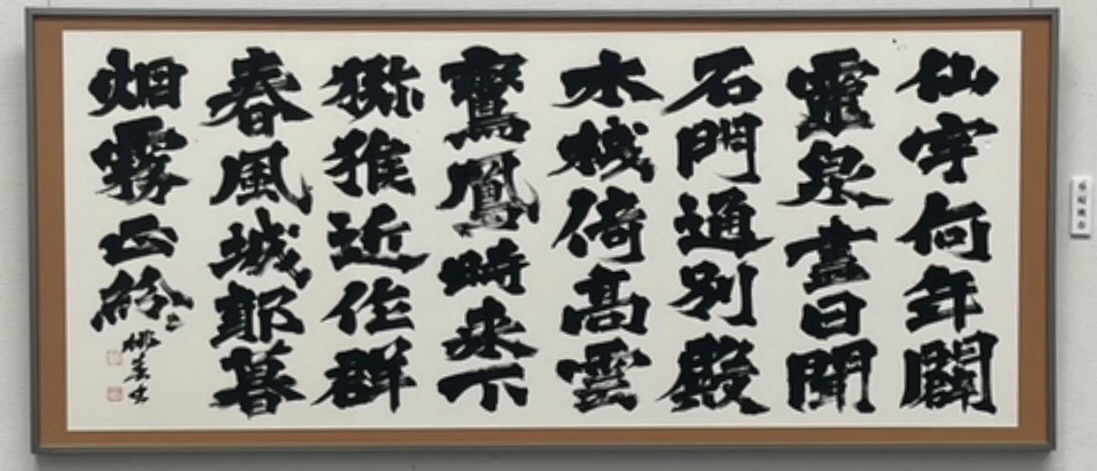 仙宇何年闢
靈泉晝日聞
石門通別殿
木棧倚高雲
鸞鳳時来下
猕猴近作群
春風城郭暮
烟霧正紛